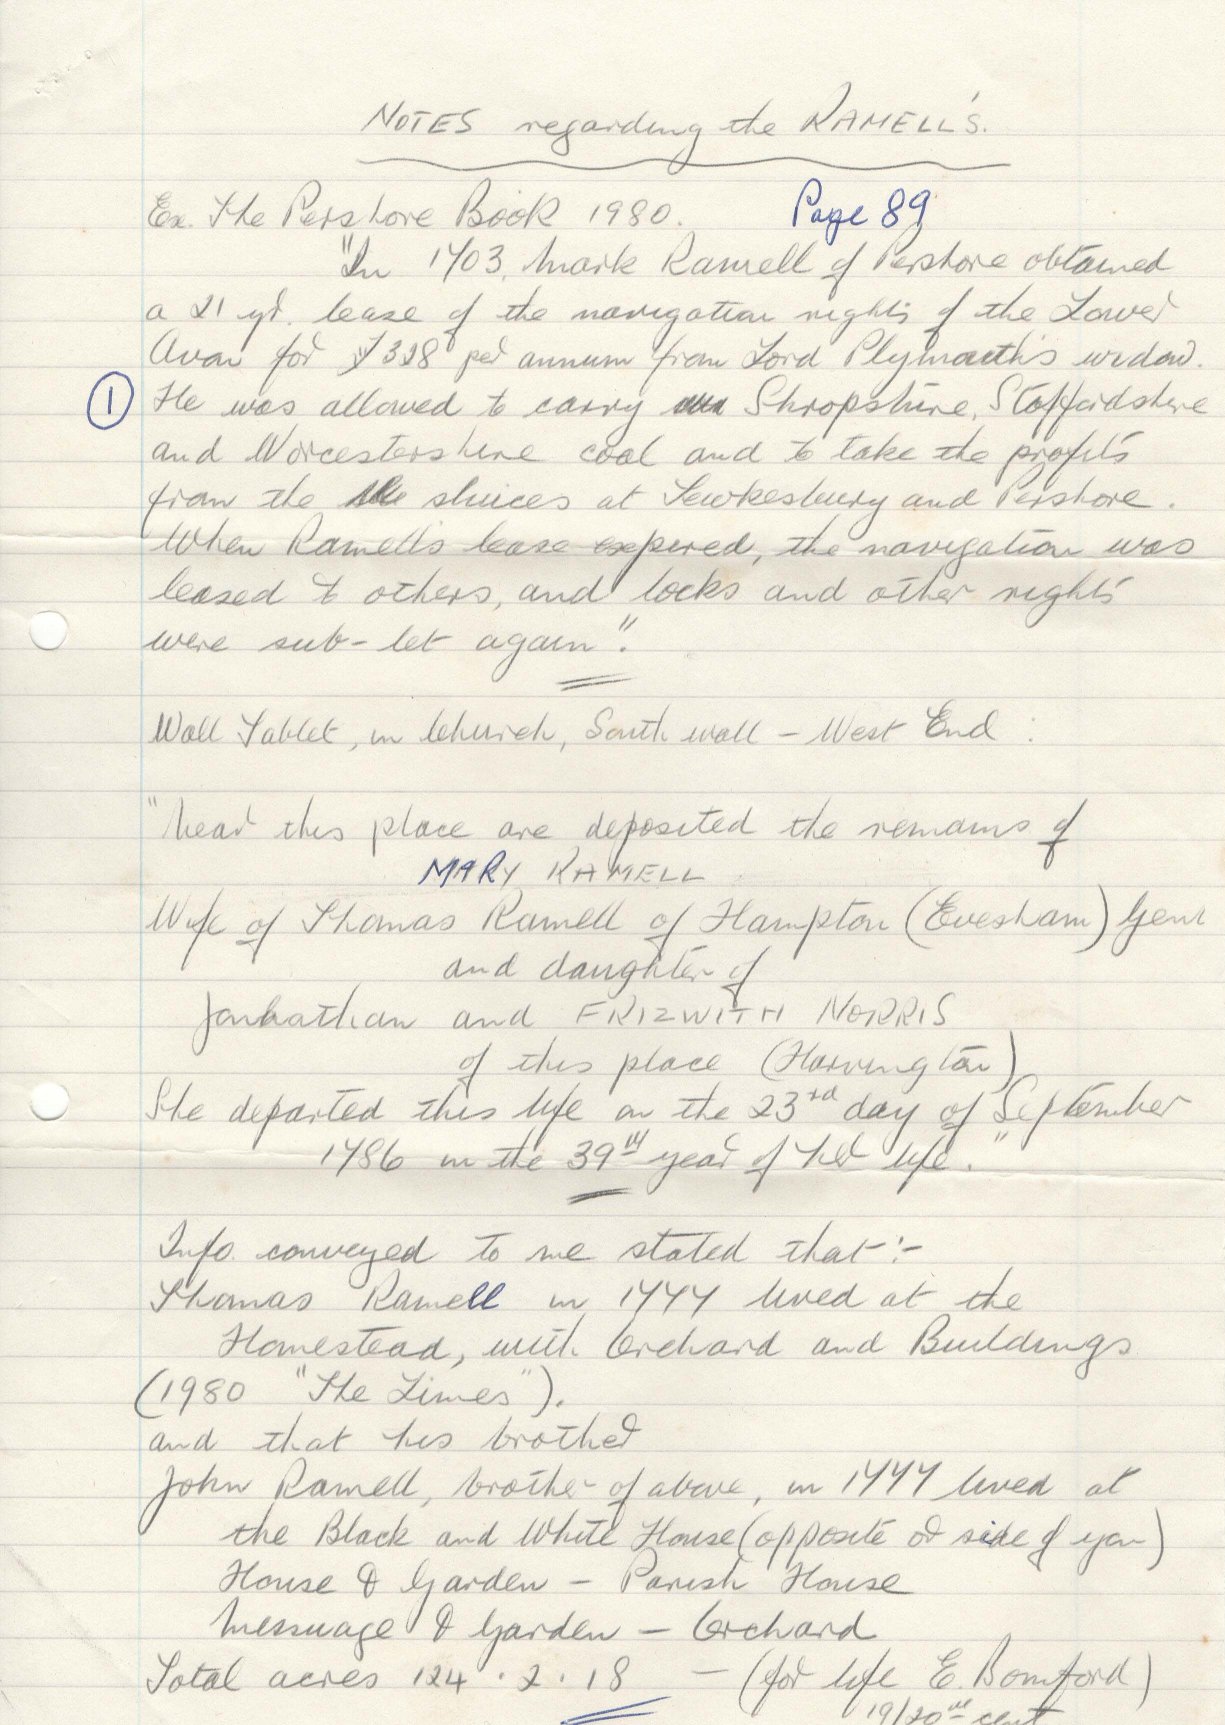 NOTES regarding the RAMELL'S.
Ex. The Pershore Book 1980. Page 89
"In 1703, Mark Ramell of Pershore obtained
a 21 yr. lease of the navigation rights of the Lower
Avon for £328 per annum from Lord Plymouth's widow.
1 He was allowed to carry Shropshire, Staffordshire
and Worcestershire coal and to take the profits
from the sluices at Tewkesbury and Pershore.
When Ramell's lease expired, the navigation was
leased to others, and locks and other rights
were sub-let again".
Wall Tablet, in Church, South wall - West End :
"Near this place are deposited the remains of
MARY RAMELL
Wife of Thomas Ramell of Hampton (Evesham) Gent
and daughter of
Jonathan and FRIZWITH NORRIS
of this place (Harvington)
She departed this life on the 23rd day of September
1786 in the 39th year of her life."
Info. conveyed to me stated that :-
Thomas Ramell in 1777 lived at the
Homestead, with Orchard and Buildings
(1980 "The Limes").
and that his brother
John Ramell, brother of above, in 1777 lived at
the Black and White House (opposite or side of you)
House & Garden - Parish House
Messuage & Garden - Orchard
Total acres 124 . 2 . 18 - (for life E. Bomford)
19/20th cent